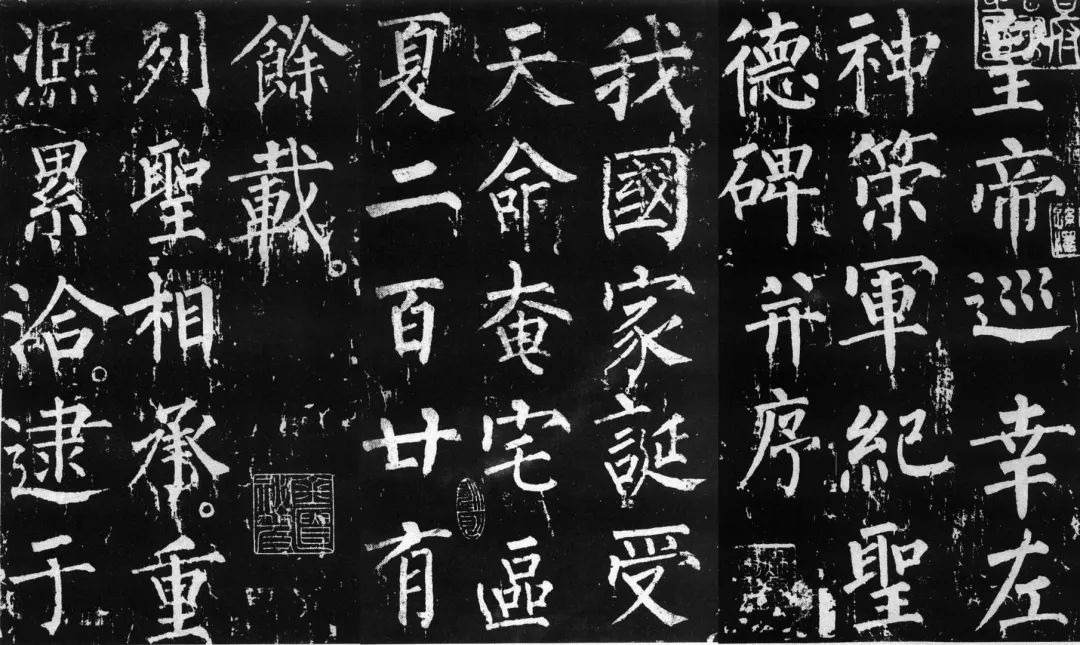 皇帝巡幸左
神策軍紀聖
德碑并序
我國家誕受
天命奄宅區
夏二百廿有
餘載。
列聖相承。重
熈累洽。逮于